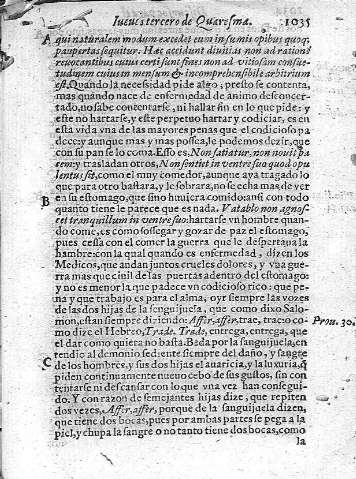 Jueues tercero de Quaresma. 1035
A qui naturalem modum excedet eum in sumis opibus quoq;
paupertas sequitur. Hæc accidunt diuitias non ad rationē
reuocantibus cuius certi sunt fines non ad vitiosam consue-
tudinem cuius in mensum & incomprehensibile arbitrium
est. Quando la necessidad pide algo, presto se contenta,
mas quando nace de enfermedad de animo desconcer-
tado, no sabe contentarse, ni hallar fin en lo que pide: y
este no hartarse, y este perpetuo hartar y codiciar, es en
esta vida vna de las mayores penas que el codicioso pa
dece: y aunque mas y mas possea, le podemos dezir, que
con su pan se lo coma. Esso es, Non satiatur, non nouit pa
cem: y trasladan otros, Non sentit in ventre suo quod opu
lentus sit, como el muy comedor, aunque aya tragado lo
que para otro bastara, y le sobrara, no se echa mas de ver
B en su estomago, que sino huuiera comido: ansi con todo
quanto tiene le parece que es nada. Vatablo non agnos-
cet tranquillum in ventre suo: hartarse vn hombre quan-
do come, es como sossegar y gozar de paz el estomago,
pues cessa con el comer la guerra que le despertaua la
hambre: con la qual quando es enfermedad, dizen los
Medicos, que andan juntos crueles dolores, y vna gue
rra mas que ciuil de las puertas adentro del estomago
y no es menor la que padece vn codicioso rico: que pe
na y que trabajo es para el alma, oyr siempre las vozes
de las dos hijas de la senguijuela, que como dixo Salo
mon, estan siempre diziendo: Affer, affer, trae, trae: o co- Prou. 30.
mo dize el Hebreo, Trade, Trade, entrega, entrega, que
el dar como quiera no basta. Beda por la sanguijuela, en
tendio al demonio sediente siempre del daño, y sangre
C de los hombres, y sus dos hijas el auaricia, y la luxuria, q̄
piden continuamente nueuo cebo de sus gustos, sin con
tentarse ni descansar con lo que vna vez han consegui-
do. Y con razon de semejantes hijas dize, que repiten
dos vezes, Affer, affer, porque de la sanguijuela dizen,
que tiene dos bocas, pues por ambas partes se pega a la
piel, y chupa la sangre o no tanto tiene dos bocas, como
la